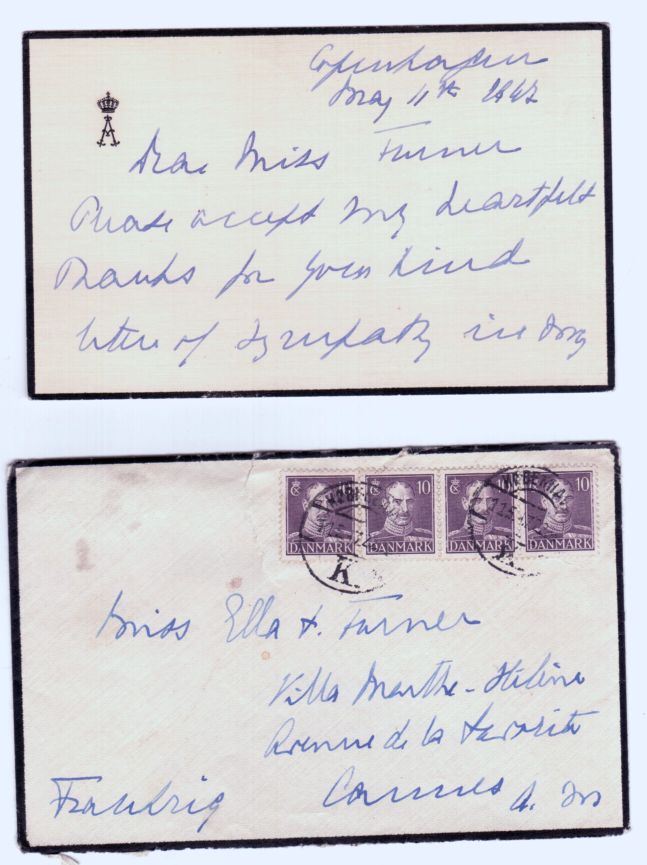 Copenhagen
May 11th 1947
A
Dear Miss Turner
Please accept my heartfelt
thanks for your kind
letter of sympathy in my
10 10
DANMARK DANMARK DANMARK DANMARK
KØBENHAVN
K.
Miss Ella Turner
Villa Marthe-Hélène
Avenue de la Favorite
Frankrig Cannes A. M